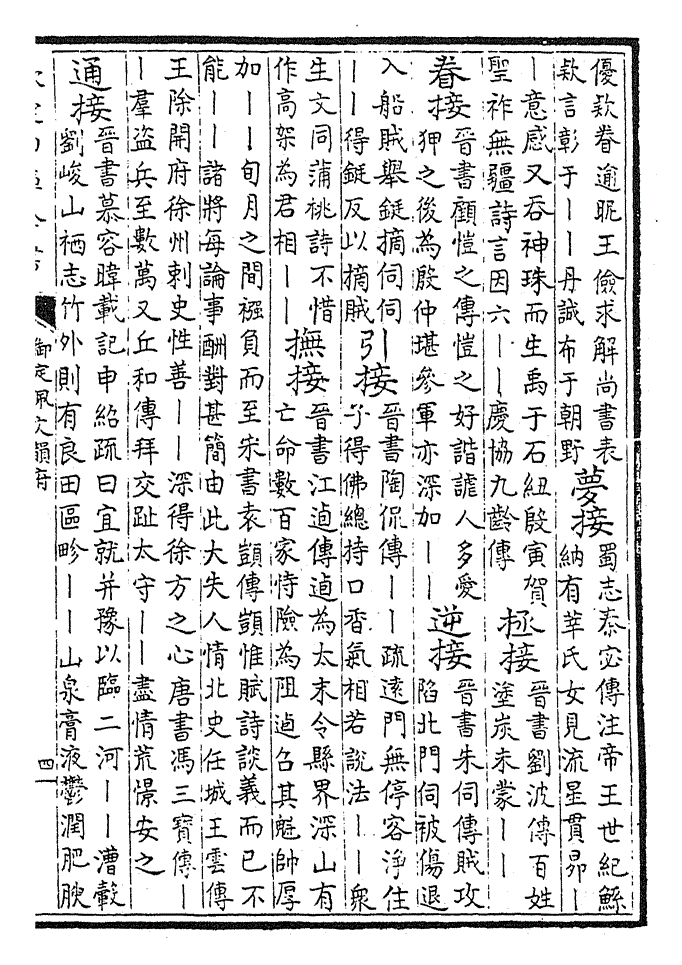 優欵眷逾昵王儉求解尚書表
欵言彰于丨丨丹誠布于朝野
夢接
蜀志秦宓傳注帝王世紀鯀
納有莘氏女見流星貫昴丨
丨意感又吞神珠而生禹于石紐殷寅賀
聖祚無疆詩言因六丨丨慶協九齡傳
拯接
晉書劉波傳百姓
塗炭未蒙丨丨
眷接
晉書顧愷之傳愷之好諧謔人多愛
狎之後為殷仲堪參軍亦深加丨丨
逆接
晉書朱伺傳賊攻
陷北門伺被傷退
入船賊舉鋋摘伺伺
丨丨得鋋反以摘賊
引接
晉書陶侃傳丨丨疏遠門無停客淨住
子得佛總持口香氣相若說法丨丨衆
生文同蒲桃詩不惜
作高架為君相丨丨
撫接
晉書江逌傳逌為太末令縣界深山有
亡命數百家恃險為阻逌召其魁帥厚
加丨丨旬月之間襁負而至宋書袁顗傳顗惟賦詩談義而已不
能丨丨諸將每論事酬對甚簡由此大失人情北史任城王雲傳
王除開府徐州刺史性善丨丨深得徐方之心唐書馮三寶傳丨
丨羣盜兵至數萬又丘和傳拜交趾太守丨丨盡情荒憬安之
通接
晉書慕容暐載記申紹疏曰宜就并豫以臨二河丨丨漕轂
劉峻山栖志竹外則有良田區畛丨丨山泉膏液鬱潤肥腴
御定佩文韻府